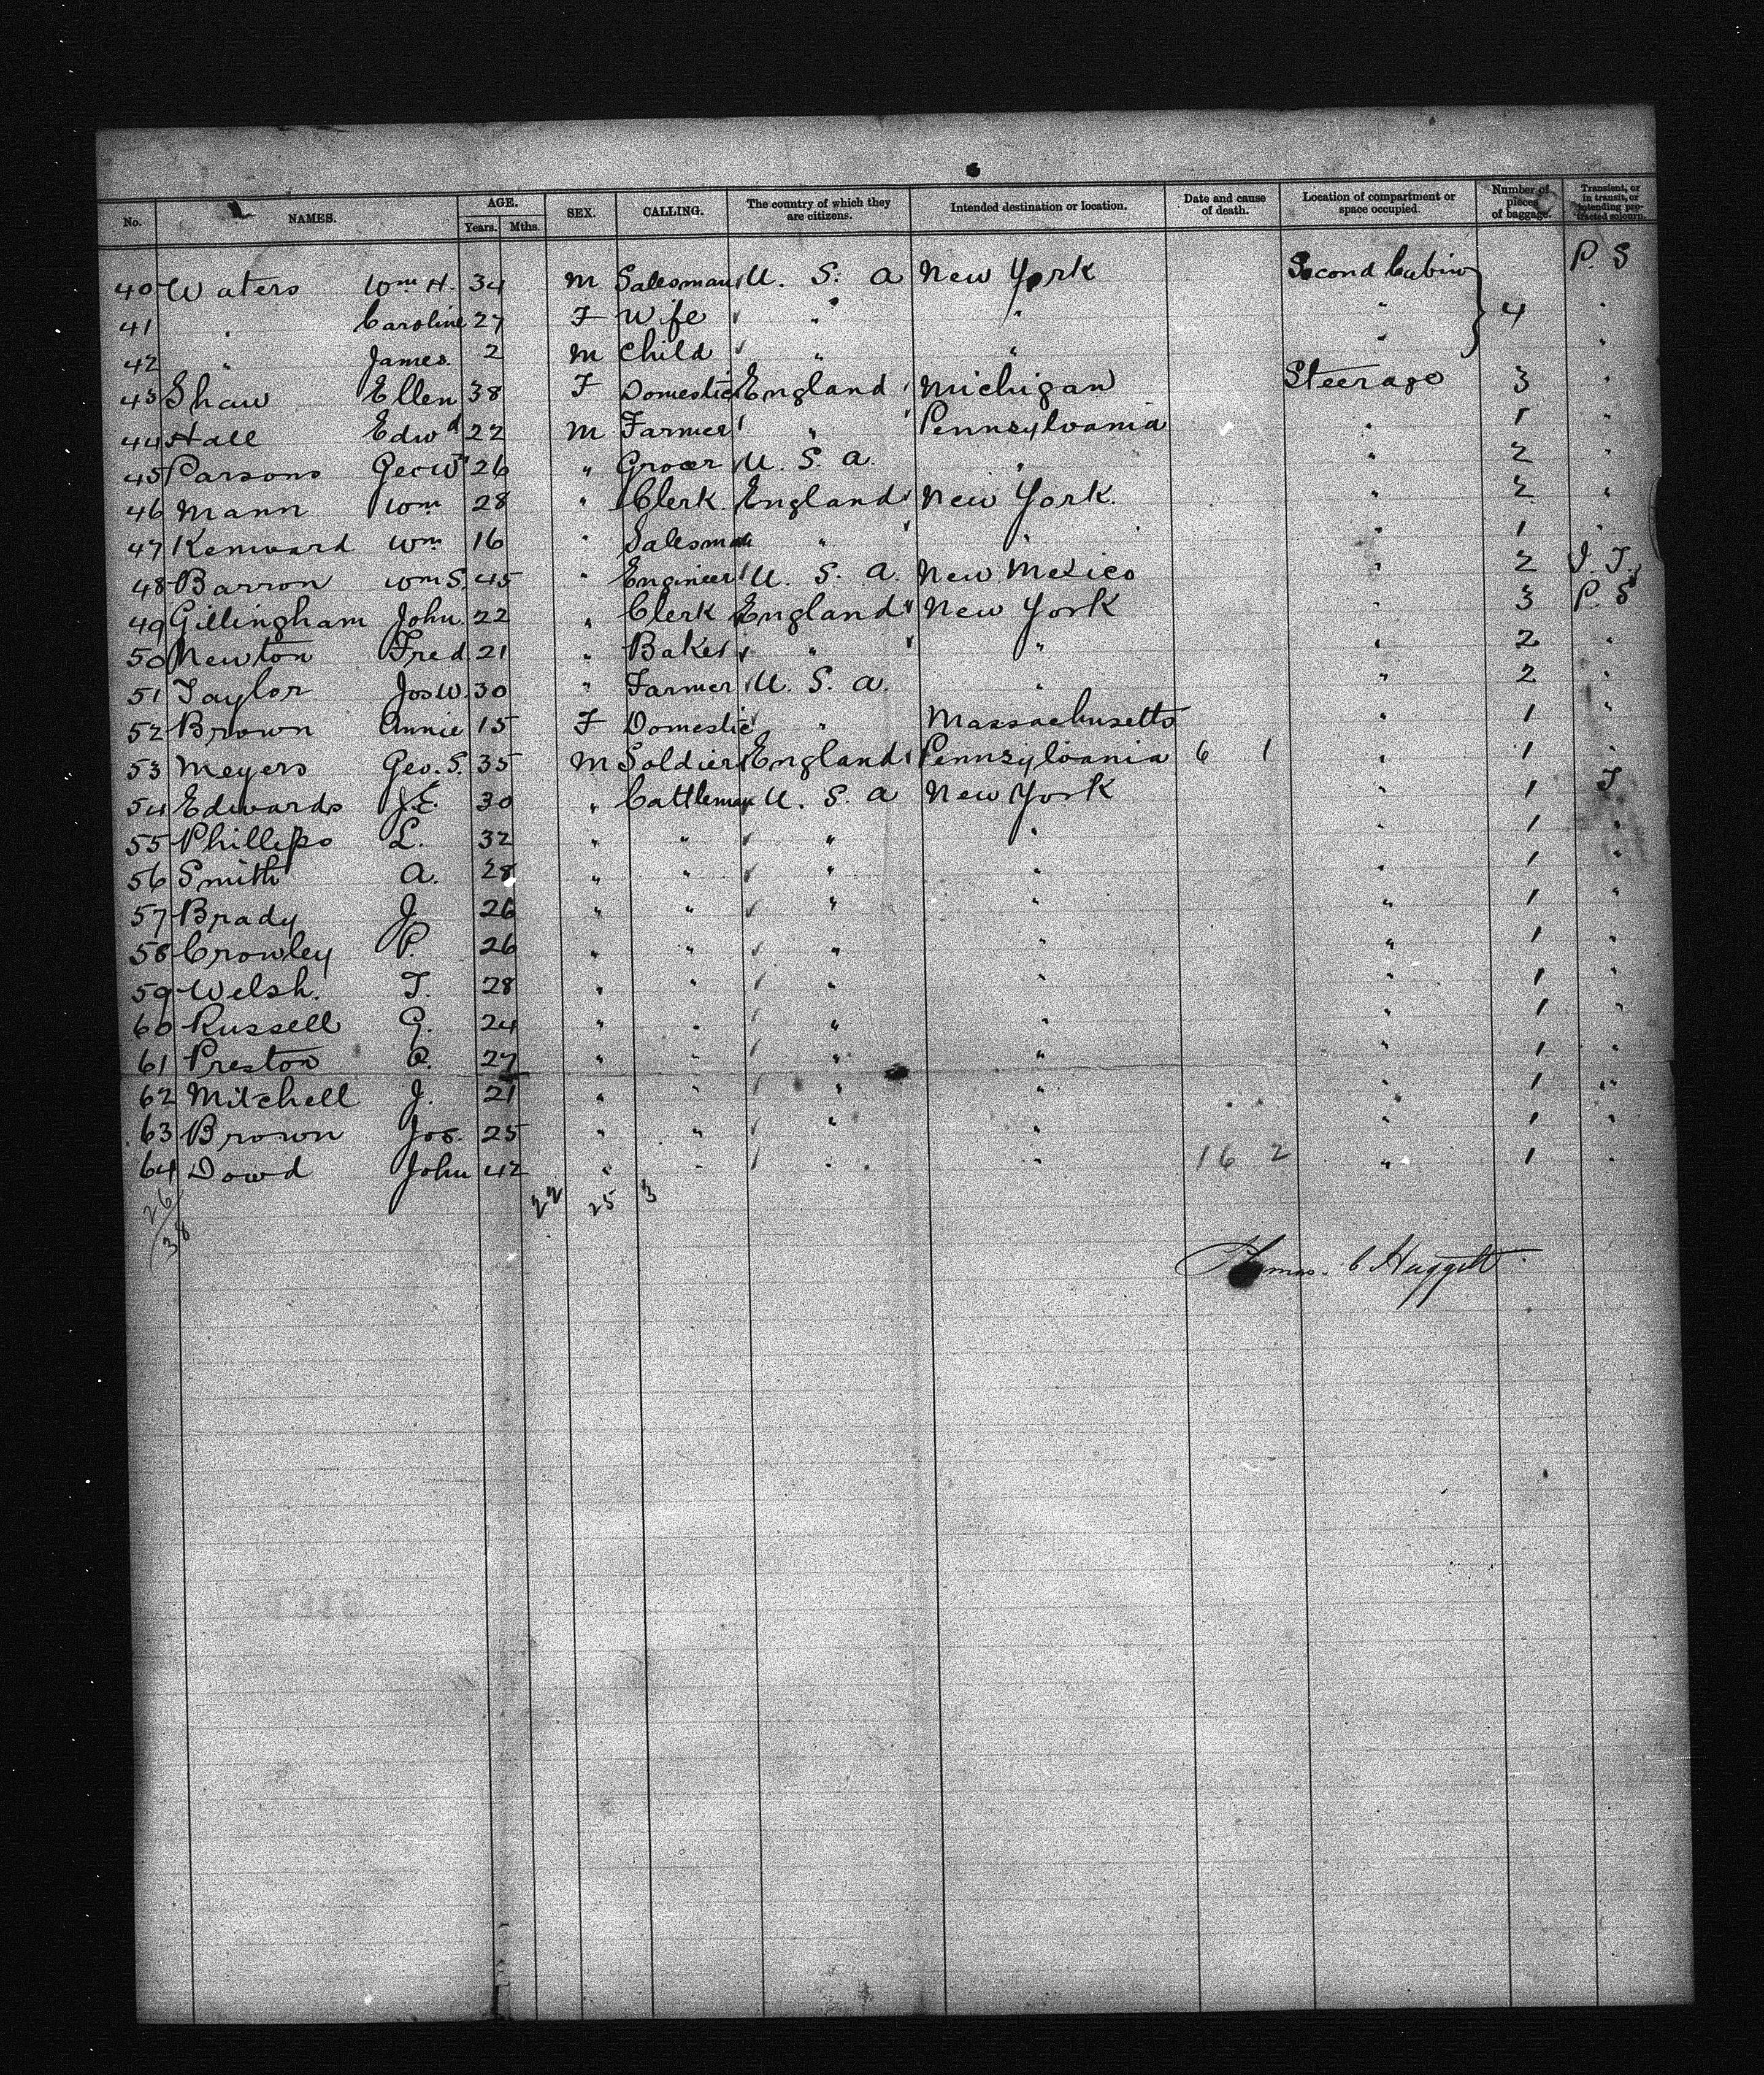 No. NAMES. AGE. Years. Mths. SEX. CALLING. The country of which they are citizens. Intended destination or location. Date and cause of death. Location of compartment or space occupied. Number of pieces of baggage. Transient, or in transit, or intending protracted sojourn.
40 Waters Wm H. 34 M Salesman U. S. A New York Second Cabin P. S
41 " Caroline 27 F Wife " " " 4 "
42 " James 2 M Child " " " "
43 Shaw Ellen 38 F Domestic England Michigan Steerage 3 "
44 Hall Edwd 22 M Farmer " Pennsylvania " 1 "
45 Parsons Geo W 26 " Grocer U. S. A. " " 2 "
46 Mann Wm 28 " Clerk England New York. " 2 "
47 Kenward Wm 16 " Salesman " " " 1 "
48 Barron Wm S. 45 " Engineer U. S. A. New Mexico " 2 I. T.
49 Gillingham John 22 " Clerk England New York " 3 P. S
50 Newton Fred 21 " Baker " " " 2 "
51 Taylor Jos W. 30 " Farmer U. S. A. " " 2 "
52 Brown Annie 15 F Domestic " Massachusetts " 1 "
53 Meyers Geo. S. 35 M Soldier England Pennsylvania 6 1 " 1 "
54 Edwards J.E. 30 " Cattleman U. S. A New York " 1 T
55 Phillips L. 32 " " " " " 1 "
56 Smith A. 28 " " " " " 1 "
57 Brady J. 26 " " " " " 1 "
58 Crowley P. 26 " " " " " 1 "
59 Welsh. T. 28 " " " " " 1 "
60 Russell G. 24 " " " " " 1 "
61 Preston 27 " " " " " 1 "
62 Mitchell J. 21 " " " " " 1 "
63 Brown Jos. 25 " " " " " 1 "
64 Dowd John 42 " " " " 16 2 " 1 "
26 22 25 3
38
Thomas. C Huggett